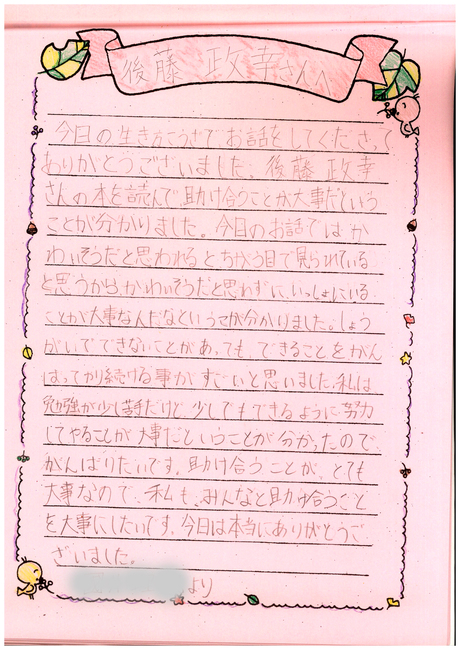 後藤 政幸さんへ
今日の生き方こうざでお話をしてくださって
ありがとうございました。後藤 政幸
さんの本を読んで助け合うことが大事だという
ことが分かりました。今日のお話ではか
わいそうだと思われるとちがう目で見られている
と思うから、かわいそうだと思わずに、いっしょにいる
ことが大事なんだなということが分かりました。しょう
がいでできないことがあっても、できることをがん
ばってやり続ける事がすごいと思いました。私は
勉強が少し苦手だけど、少しでもできるように努力
してやることが大事だということが分かったので、
がんばりたいです。助け合うことが、とても
大事なので、私も、みんなと助け合うこと
を大事にしたいです。今日は本当にありがとうご
ざいました。
より